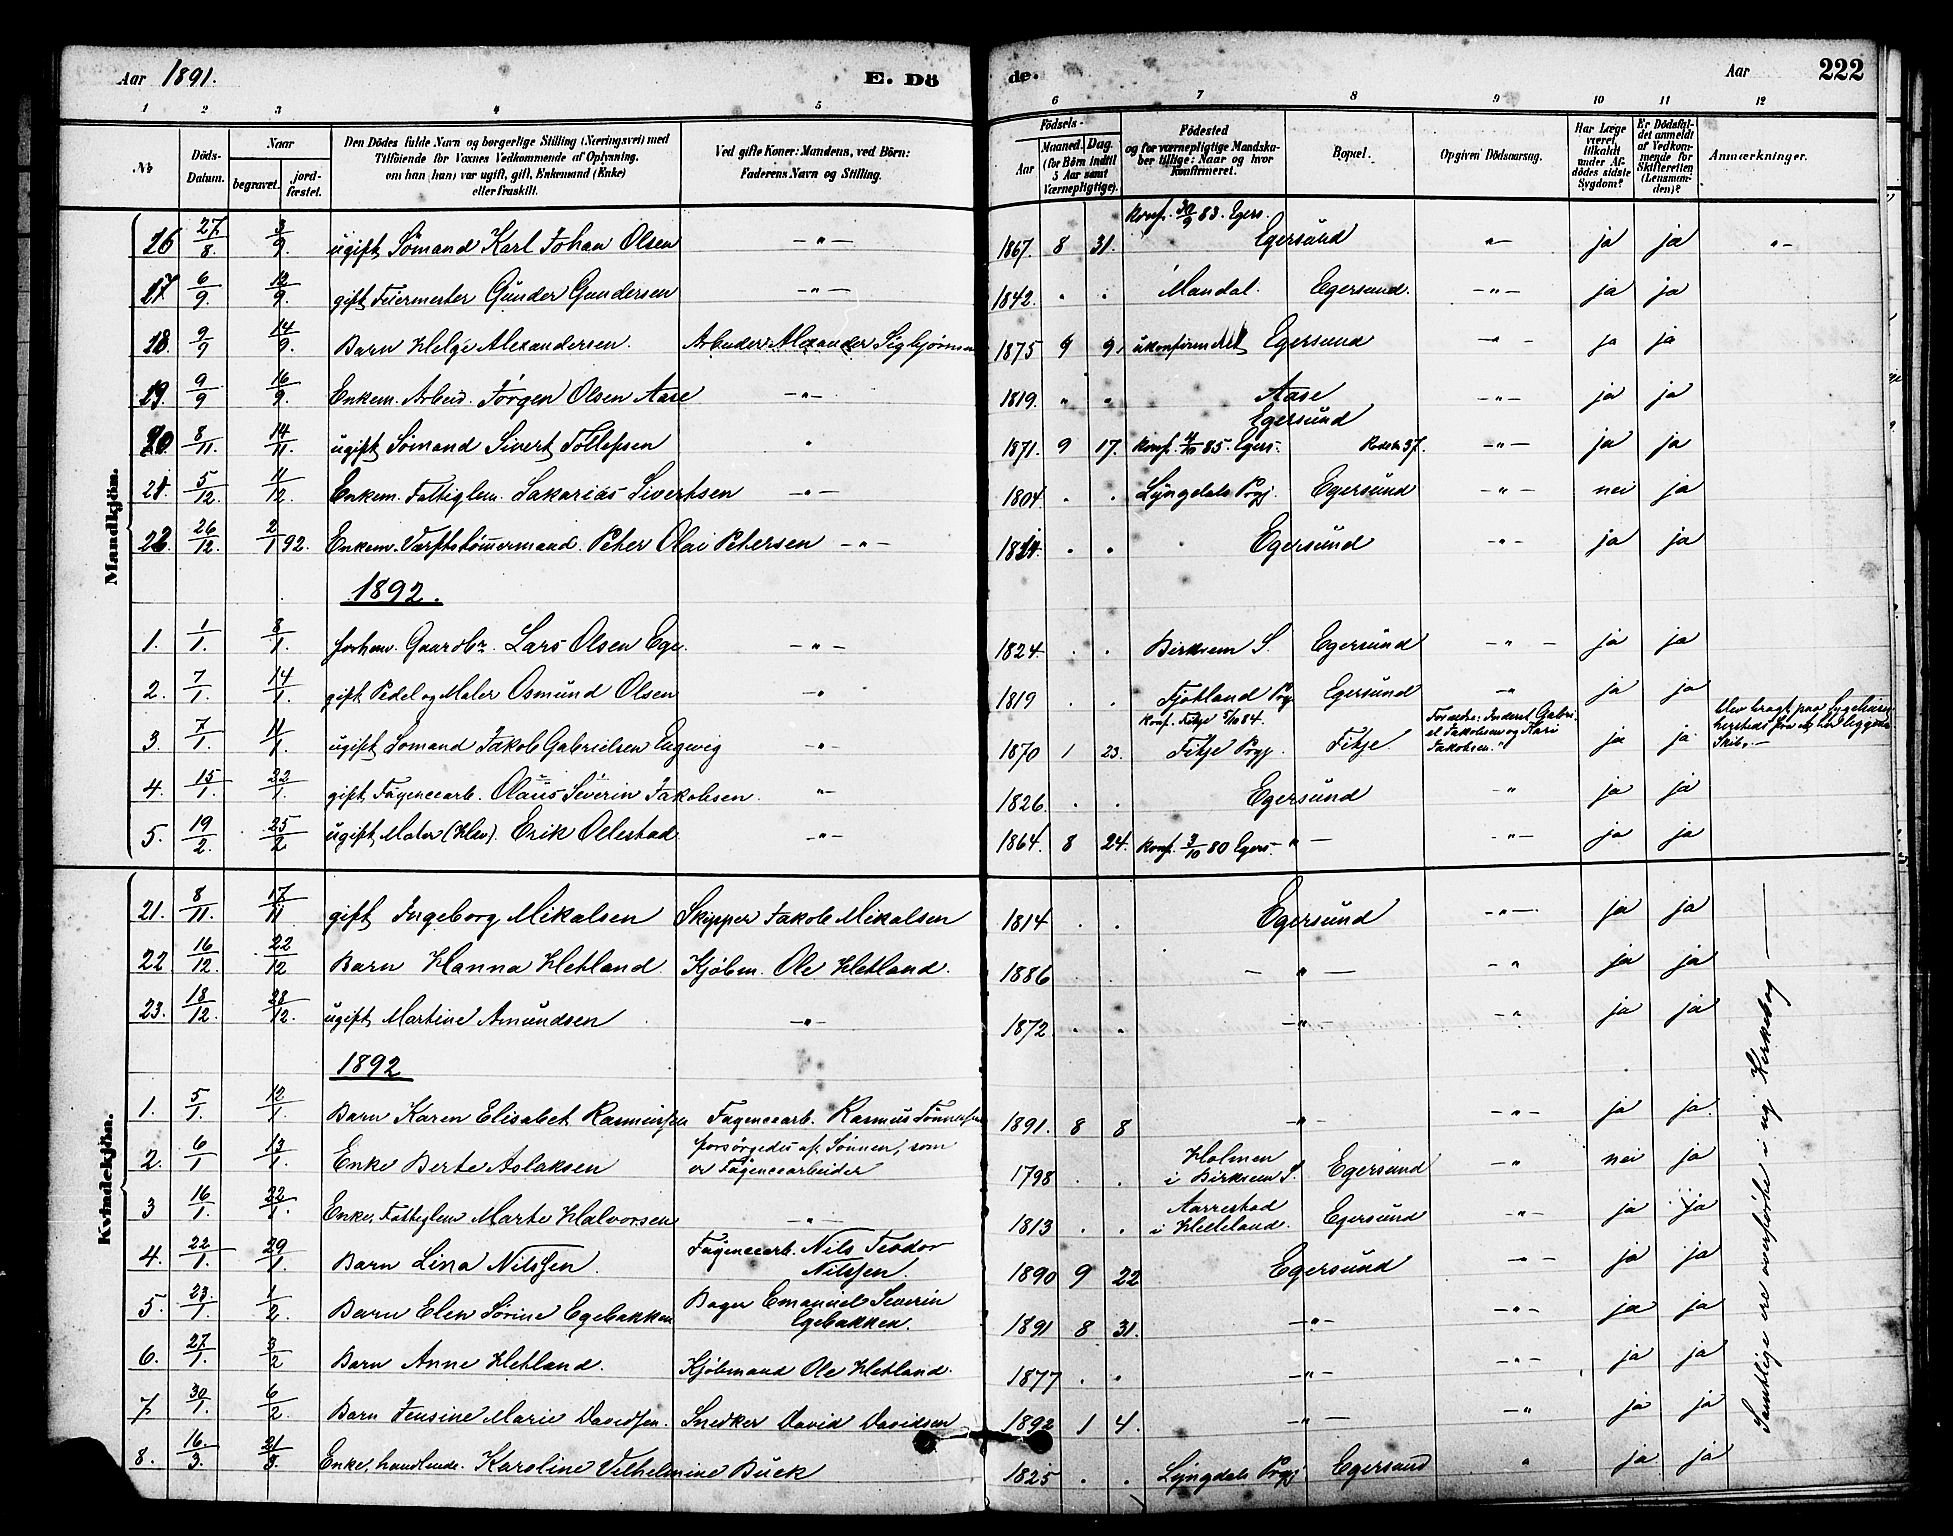 Aar 1891. E. Dö de. Aar 222
1 2 3 4 5 6 7 8 9 10 11 12
No. Döds-Datum. Naar begravet. jord-fæstet. Den Dödes fulde Navn og borgerlige Stilling (Næringsvei) med Tilföiende for Voxnes Vedkommende af Oplysning, om han (hun) var ugift, gift, Enkemand (Enke) eller fraskilt. Ved gifte Koner: Mandens, ved Börn: Faderens Navn og Stilling. Födsels- Aar Maaned. Dag. (for Börn indtil 5 Aar samt Værnepligtige). Födested og for værnepligtige Mandskaber tillige: Naar og hvor Konfirmeret. Bopæl. Opgiven Dödsaarsag. Har Læge været tilkaldt under Afdödes sidste Sygdom? Er Dödsfaldet anmeldt af Vedkommende for Skifteretten (Lensmanden)? Anmærkninger.
Mandkjön.
26 27/8. 3/9. ugift Sömand Karl Johan Olsen —"— 1867. 8 31. Konf. 30/9 83. Egers. Egersund "— ja ja "-
17 6/9. 12/9. gift Feiermester Gunder Gundersen —"— 1842. " " Mandal. Egersund. —"— ja ja
18. 9/9 14/9. Barn Helge Alexandersen. Arbeider Alexander Sigbjörnsen 1875 9 9, ukonfirmeret Egersund —"— ja ja
19. 9/9 16/9. Enkem. Arbeid. Jörgen Olsen Aase —"— 1819. " " Aase —"— ja ja
20 8/11. 14/11. ugift Sömand Sivert Tollefsen " 1871. 9 17. Egersund Konf. 4/10 85. Egers. —"— ja ja
21 5/12 11/12. Enkem. Fattiglem. Sakarias Sivertsen —"— 1804. . . Lyngdals Prgj. Egersund —"— nei ja
22. 26/12. 2/1 92. Enkem. Værftstömmermand. Peter Olai Petersen —"— . . Egersund —"— ja ja
1892.
1. 1/1. 8/1. forhen. Gaardbr. Lars Olsen Ege. —"— 1824. . . Birkrem S. Egersund —"— ja ja
2. 7/1. 14/1. gift Pedel og Maler Osmund Olsen —" 1819 . . Fjotland Prgj Egersund —" ja ja
3. 7/1. 11/1. ugift Sömand Jakob Gabrielsen Engvig —"— 1870 1 23. Konf. Fitje 5/10 84. Fitje Prgj. Fitje. Forældre: Inderst Gabriel Jakobsen og Kari Jakobsen." ja ja blev bragt paa Sygehuset hersteds fra et her liggende Skib.—
4. 15/1. 22/1. gift Fayencearb. Olaus Severin Jakobsen. "— 1826. . . Egersund " ja ja
5. 19/2. 25/2 ugift Maler (Elev). Erik Ollestad —"— 1864. 8 24. Konf. 3/10 80 Egers. —"— —"— ja ja
Kvindekjön.
21. 8/11. 17/11 gift Ingeborg Mikalsen Skipper Jakob Mikalsen 1814 . . Egersund —"—. ja ja
22 16/12. 22/12 Barn Hanna Hetland. Kjöbm. Ole Hetland. 1886 . . — " — —" ja ja
23. 18/12. 28/12. ugift Martine Amundsen —"— 1872. . . —"— —" ja ja
1892
1. 5/1. 12/1. Barn Karen Elisabet Rasmussen Fayencearb. Rasmus Tönnesen 1891. 8 8 —"— —"— ja ja.
2. 6/1 13/1. Enke Berte Aslaksen forsörgedes af Sönnen, som er Fayencearbeider 1798 . . Holmen i Birkrem S. Egersund —" nei ja
3 16/1. 22/1. Enke, Fattiglem Marte Halvorsen —"— 1813 . . Aarrestad i Helleland. Egersund —"— ja ja
4. 22/1. 29/1. Barn Lina Nilssen. Fayencearb. Nils Teodor Nilssen. 1890 9 22 Egersund —"— ja ja
5. 23./1. 1/2. Barn Elen Sörine Egebakken Bager Emanuel Severin Egebakken. 1891 8 31. —"— —"— ja ja
6. 27/1. 3/2 Barn Anne Hetland. Kjöbmand Ole Hetland. 1877 . . —"— —"— ja ja
7. 30/1. 6/2. Barn Jensine Marie Davidsen. Snedker David Davidsen 1892 1 4. —"— —" ja ja
8. 16./3. 21/3. Enke, handlende. Karoline Vilhelmine Buck 1825 . . Lyngdals Prgj Egersund " ja ja
Samtlige ere overförte i ny Kirkebog —